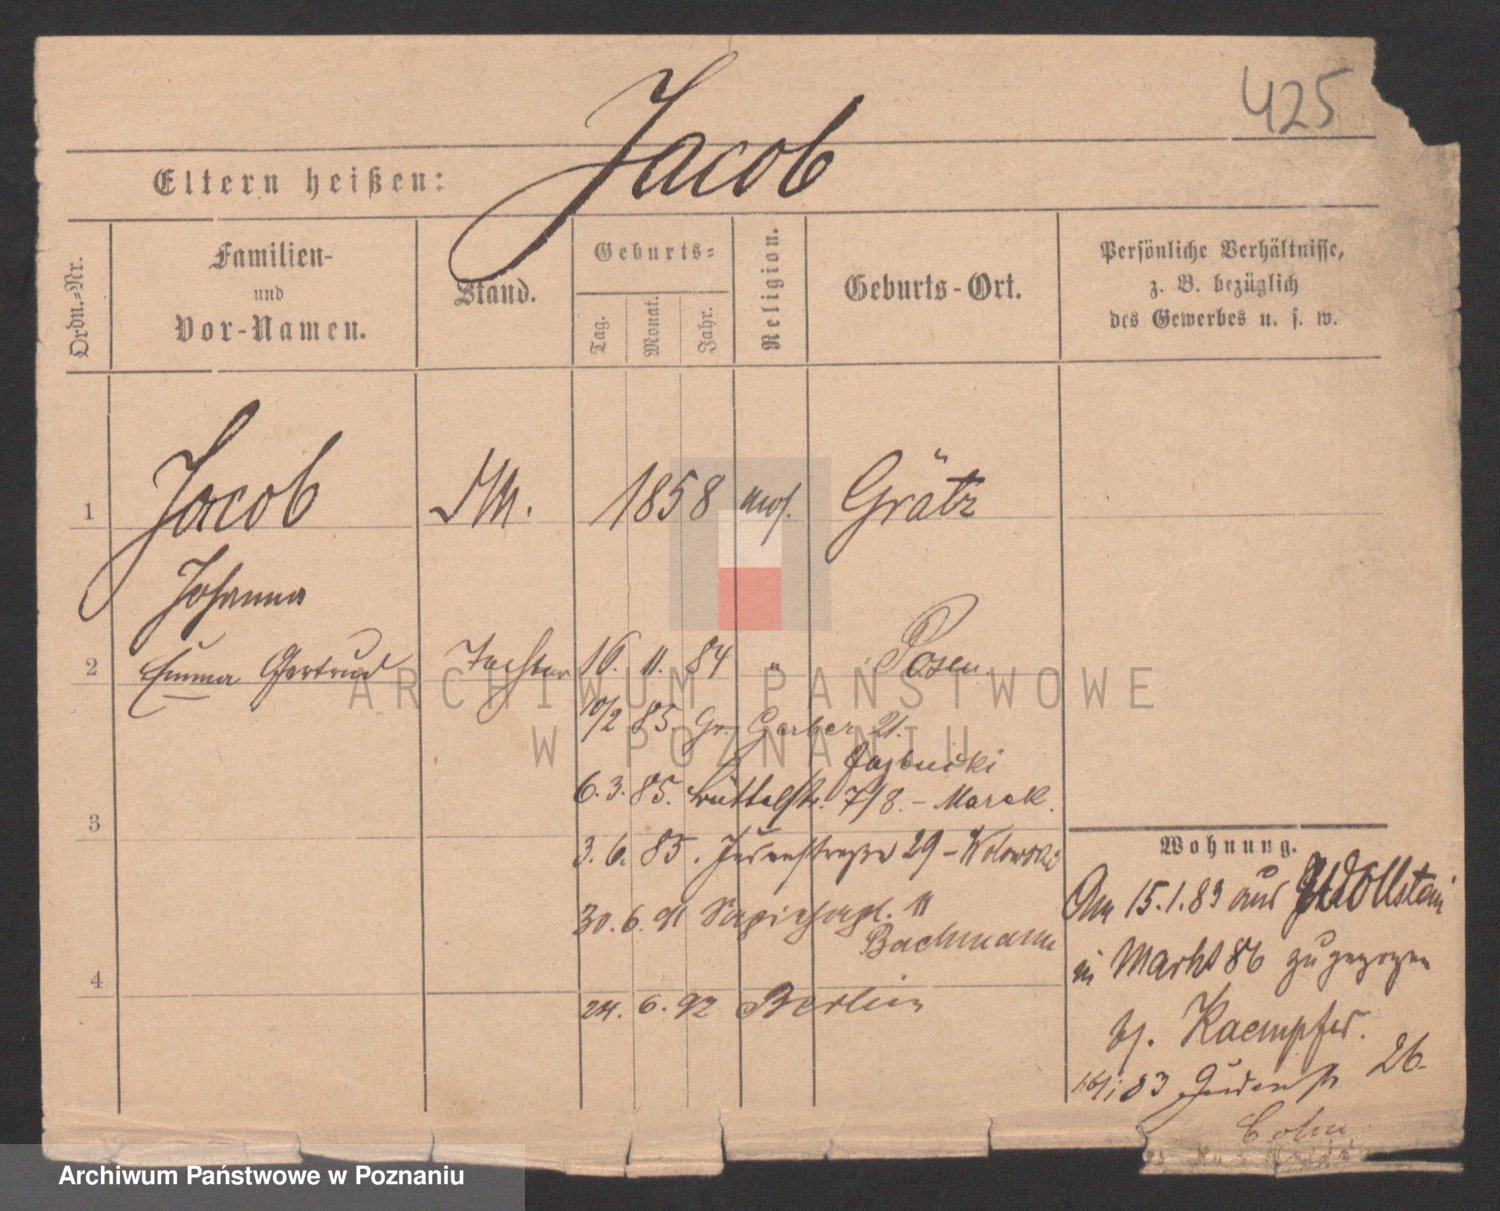 425
Jacob
Eltern heißen:
Ordn.-Nr.
Familien-
und
Vor-Namen.
Stand.
Geburts-
Tag.
Monat.
Jahr.
Religion.
Geburts-Ort.
Persönliche Verhältnisse,
z. B. bezüglich
des Gewerbes u. s. w.
1 Jacob 1858 mos. Grätz
Johanna
2 Emma Gertrud Tochter 16. 11. 84 " Posen
10/2 85. Gr. Gerber 21.
6. 3. 85. 7/8. - Marek.
3
3. 6. 85. Judenstraße 29 -
30. 6. 91 Sapiehapl. 11
Bachmann
4
24. 6. 92 Berlin
Wohnung.
Am 15.1.83 aus Wollstein
in Markt 86 zugezogen
bj. Kaempfer.
83 Judenstr 26.
Cohn
ARCHIWUM PAŃSTWOWE
W POZNANIU
Archiwum Państwowe w Poznaniu